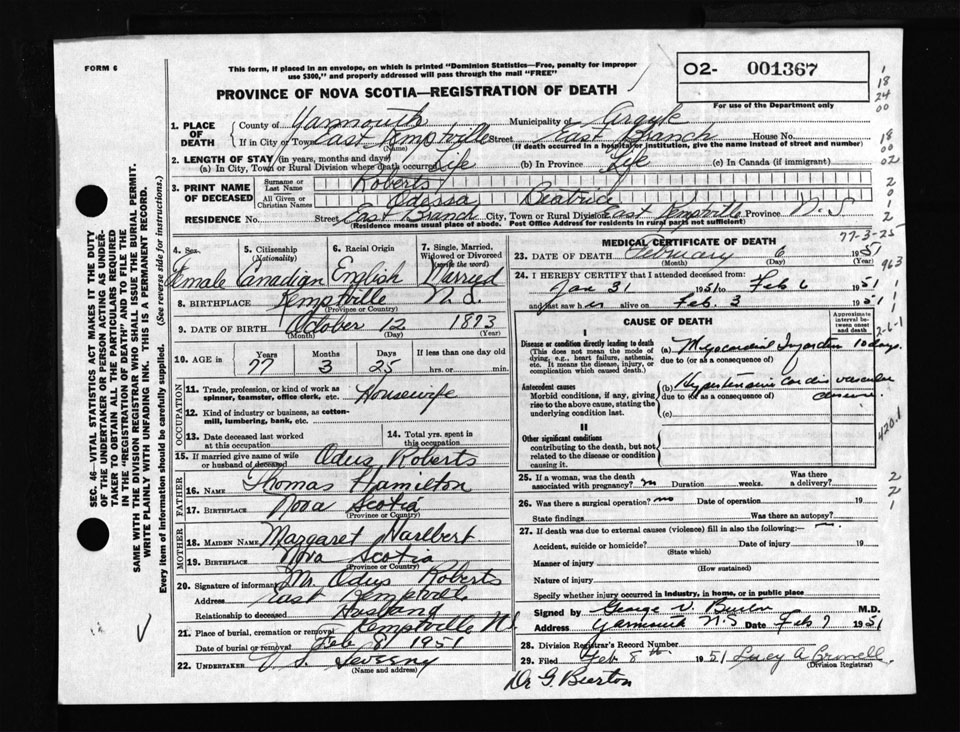 FORM 6
This form, if placed in an envelope, on which is printed "Dominion Statistics—Free, penalty for improper
use $300," and properly addressed will pass through the mail "FREE"
PROVINCE OF NOVA SCOTIA—REGISTRATION OF DEATH
O2- 001367
For use of the Department only
1. PLACE OF DEATH County of Yarmouth Municipality of Argyle
If in City or Town East Kemptville (Name) Street East Branch House No.
(If death occurred in a hospital or institution, give the name instead of street and number)
2. LENGTH OF STAY (in years, months and days)
(a) In City, Town or Rural Division where death occurred Life (b) In Province Life (c) In Canada (if immigrant)
3. PRINT NAME OF DECEASED Surname or Last Name Roberts
All Given or Christian Names Odessa Beatrice
RESIDENCE No. Street East Branch City, Town or Rural Division East Kemptville Province N.S.
(Residence means usual place of abode. Post Office Address for residents in rural parts not sufficient)
4. Sex Female
5. Citizenship (Nationality) Canadian
6. Racial Origin English
7. Single, Married, Widowed or Divorced (write the word) Married
8. BIRTHPLACE Kemptville N.S.
(Province or Country)
9. DATE OF BIRTH October 12 1873
(Month) (Day) (Year)
10. AGE in Years 77 Months 3 Days 25 If less than one day old hrs. or min.
OCCUPATION
11. Trade, profession, or kind of work as spinner, teamster, office clerk, etc. Housewife
12. Kind of industry or business, as cotton-mill, lumbering, bank, etc.
13. Date deceased last worked at this occupation
14. Total yrs. spent in this occupation
15. If married give name of wife or husband of deceased Odus Roberts
FATHER
16. NAME Thomas Hamilton
17. BIRTHPLACE Nova Scotia
(Province or Country)
MOTHER
18. MAIDEN NAME Margaret
19. BIRTHPLACE Nova Scotia
(Province or Country)
20. Signature of informant Mr. Odus Roberts
Address East Kemptville
Relationship to deceased Husband
21. Place of burial, cremation or removal Kemptville N.S.
Date of burial or removal Feb 8 1951
22. UNDERTAKER V. S.
(Name and address)
MEDICAL CERTIFICATE OF DEATH
77-3-25
23. DATE OF DEATH February 6 1951
(Month) (Day) (Year)
24. I HEREBY CERTIFY that I attended deceased from
Jan 31 1951 to Feb 6 1951
and last saw her alive on Feb. 3 1951
CAUSE OF DEATH
Approximate interval between onset and death
I
Disease or condition directly leading to death
(This does not mean the mode of dying, e.g., heart failure, asthenia, etc. It means the disease, injury, or complication which caused death.)
(a) Myocardial Infarction 10 days
due to (or as a consequence of)
Antecedent causes
Morbid conditions, if any, giving rise to the above cause, stating the underlying condition last.
(b) Hypertensive Cardio vascular disease.
due to (or as a consequence of)
(c)
II
Other significant conditions
contributing to the death, but not related to the disease or condition causing it.
25. If a woman, was the death associated with pregnancy? no Duration weeks. Was there a delivery?
26. Was there a surgical operation? no Date of operation 19
State findings Was there an autopsy?
27. If death was due to external causes (violence) fill in also the following:—
Accident, suicide or homicide? Date of injury 19
(State which)
Manner of injury
(How sustained)
Nature of injury
Specify whether injury occurred in industry, in home, or in public place
Signed by George V. Burton M.D.
Address Yarmouth N.S Date Feb 7 1951
28. Division Registrar's Record Number
29. Filed Feb 8th 1951 Lucy A
(Division Registrar)
Dr G. Burton
SEC. 46—VITAL STATISTICS ACT MAKES IT THE DUTY
OF THE UNDERTAKER OR PERSON ACTING AS UNDER-
TAKER TO OBTAIN ALL THE PARTICULARS REQUIRED
IN THE "REGISTRATION OF DEATH" AND TO FILE THE
SAME WITH THE DIVISION REGISTRAR WHO SHALL ISSUE THE BURIAL PERMIT.
WRITE PLAINLY WITH UNFADING INK. THIS IS A PERMANENT RECORD.
Every item of information should be carefully supplied. (See reverse side for instructions.)
1
18
24
00
18
00
02
2
0
1
2
963
1
1
1
2-6-1
420.1
2
2
1